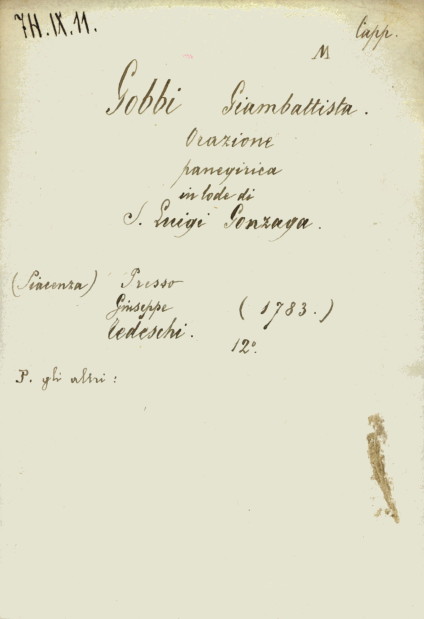 7H.IX.11.
Capp.
M
Gobbi Giambattista.
Orazione
panegirica
in lode di
S. Luigi Gonzaga.
(Piacenza) Presso
Giuseppe (1783.)
Tedeschi.
12º.
P. gli altri: